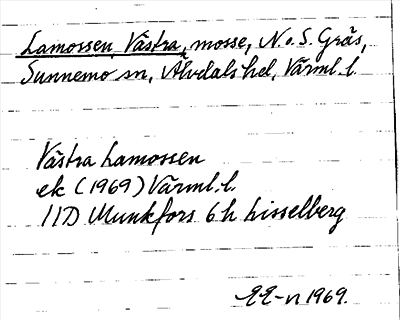 Lamossen, Västra, mosse, N. o. S. Gräs,
Sunnemo sn, Älvdals hd, Värml. l.
Västra Lamossen
ek (1969) Värml. l.
11D Munkfors 6h Lisselberg
EE-n 1969.